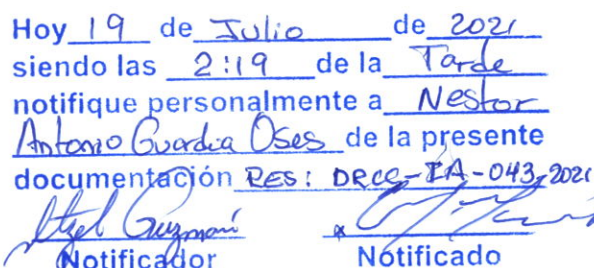 Hoy 19 de Julio de 2021
siendo las 2:19 de la Tarde
notifique personalmente a Nestor
Antonio Guardia Oses de la presente
documentación RES: DRCC-IA-043-2021
Itzel Guzmán x
Notificador Notificado